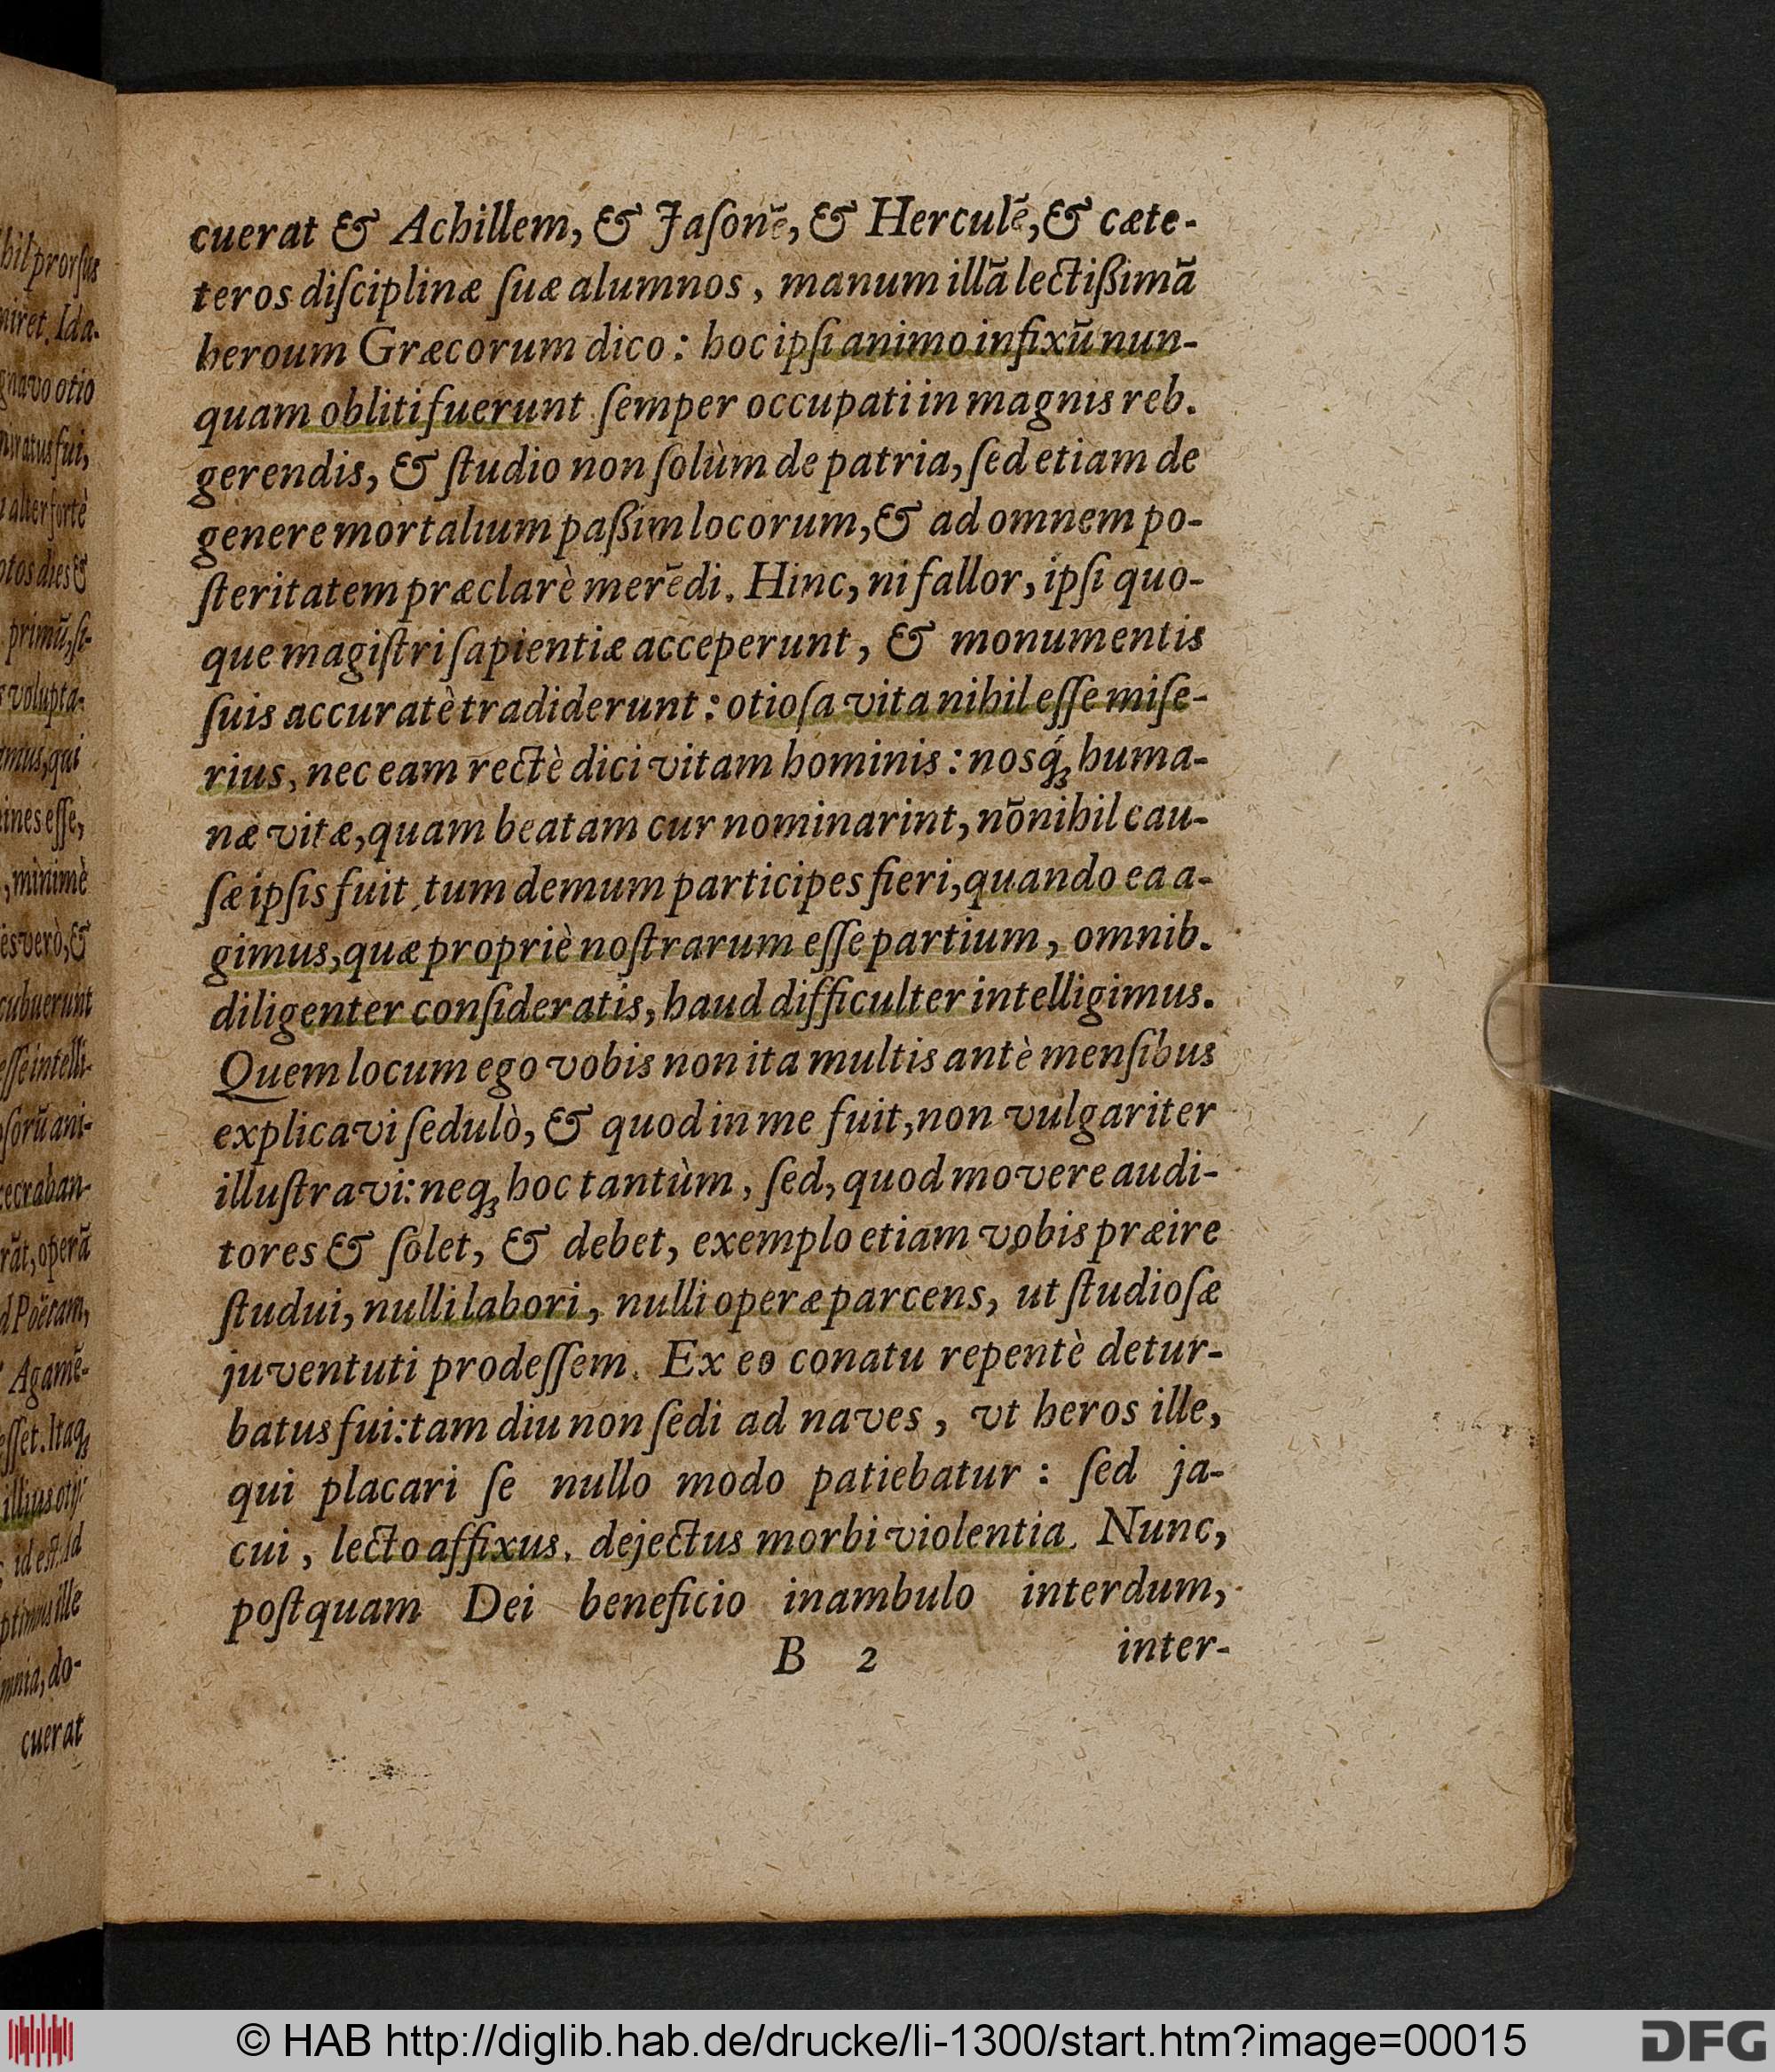 cuerat & Achillem, & Jaſonē, & Herculē, & cæte-
teros diſciplinæ ſuæ alumnos, manum illā lectißimā
heroum Græcorum dico: hoc ipſi animo infixū nun-
quam obliti fuerunt ſemper occupati in magnis reb.
gerendis, & ſtudio non ſolùm de patria, ſed etiam de
genere mortalium paßim locorum, & ad omnem po-
ſteritatem præclarè merēdi. Hinc, ni fallor, ipſi quo-
que magiſtri ſapientiæ acceperunt, & monumentis
ſuis accuratè tradiderunt: otioſa vita nihil eſſe miſe-
rius, nec eam rectè dici vitam hominis: nosq́ꝫ huma-
næ vitæ, quam beatam cur nominarint, nōnihil cau-
ſæ ipſis fuit, tum demum participes fieri, quando ea a-
gimus, quæ propriè noſtrarum eſſe partium, omnib.
diligenter conſideratis, haud difficulter intelligimus.
Quem locum ego vobis non ita multis antè menſibus
explicavi ſedulò, & quod in me fuit, non vulgariter
illuſtravi: neqꝫ hoc tantùm, ſed, quod movere audi-
tores & ſolet, & debet, exemplo etiam vobis præire
ſtudui, nulli labori, nulli operæ parcens, ut ſtudioſæ
juventuti prodeſſem. Ex eo conatu repentè detur-
batus fui: tam diu non ſedi ad naves, vt heros ille,
qui placari ſe nullo modo patiebatur: ſed ja-
cui, lecto affixus, dejectus morbi violentia. Nunc,
poſtquam Dei beneficio inambulo interdum,
B 2 inter-
hil prorſus
niret. Ida-
gnavo otio
miratus fui,
alter fortè
otos dies &
primū, ſi-
volupta-
mus, qui
ines eſſe,
, minimè
es verò, &
cubuerunt
eſſe intelli-
oſorū ani-
ecraban-
rāt, operā
d Poëtam,
Agamē-
eſſet. Itaqꝫ
illius otij:
id eſt. Id
ptimus ille
mnia, do-
cuerat
© HAB http://diglib.hab.de/drucke/li-1300/start.htm?image=00015
DFG